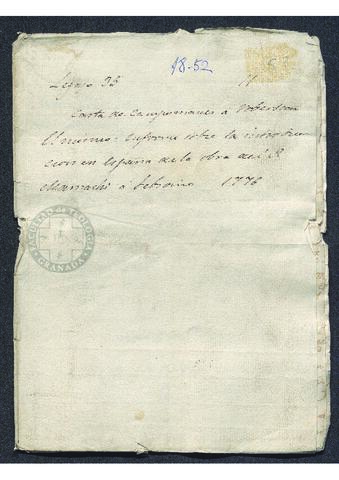 18-52
Legajo 33 11
Carta de Campomanes a Robertson
El mismo: informe sobre la introduc
cion en España de la obra del P.
Mamachi a Febronio 1776
FACULTAD DE TEOLOGIA
GRANADA